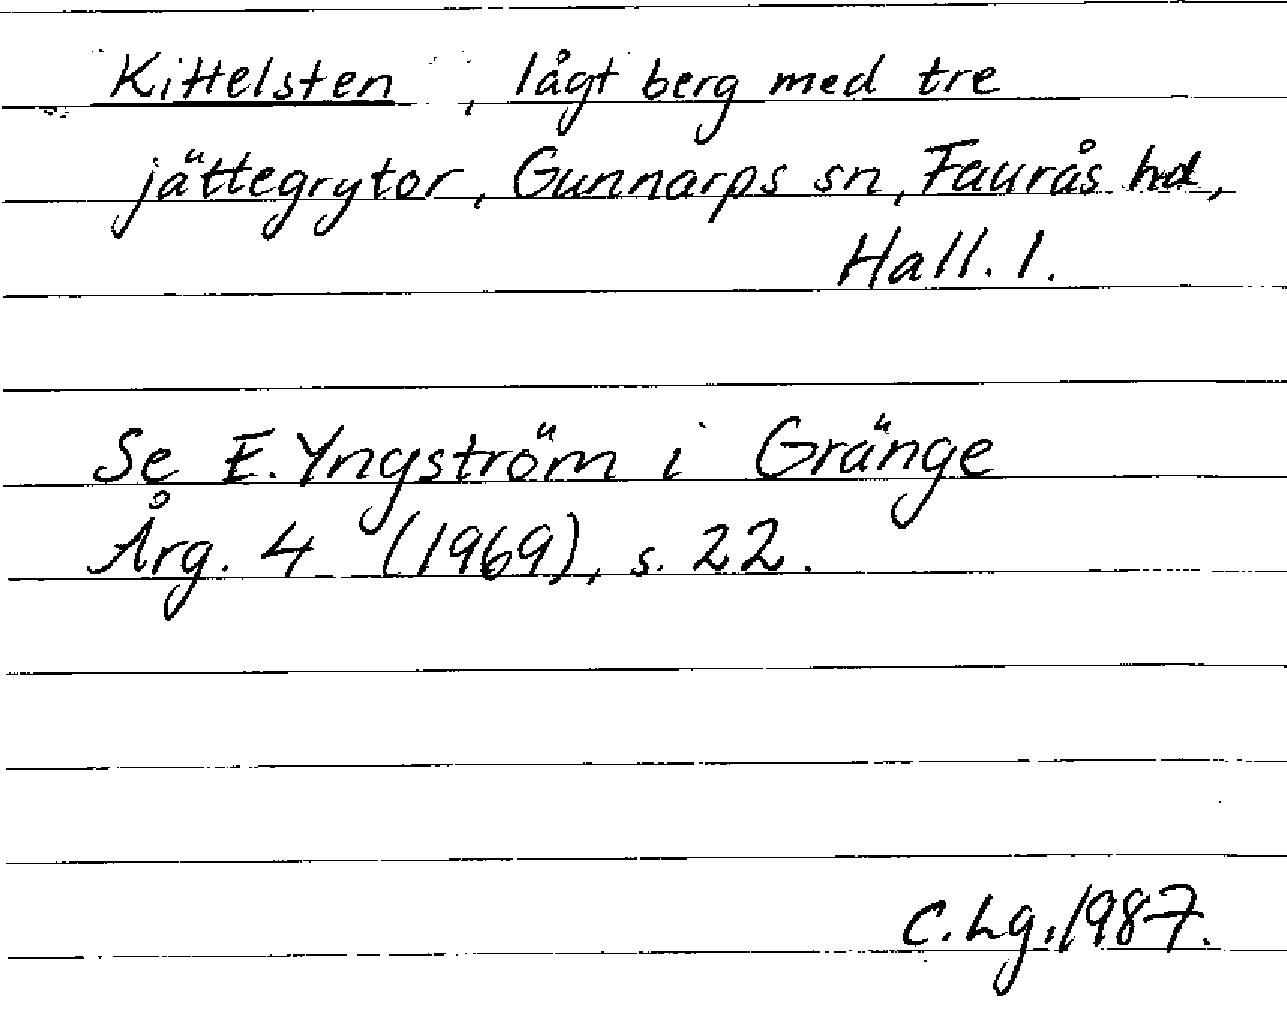 Kittelsten, lågt berg med tre
jättegrytor, Gunnarps sn, Faurås hd,
Hall. l.
Se E. Yngström i Gränge
Årg. 4 (1969), s. 22.
C. Lg. 1987.